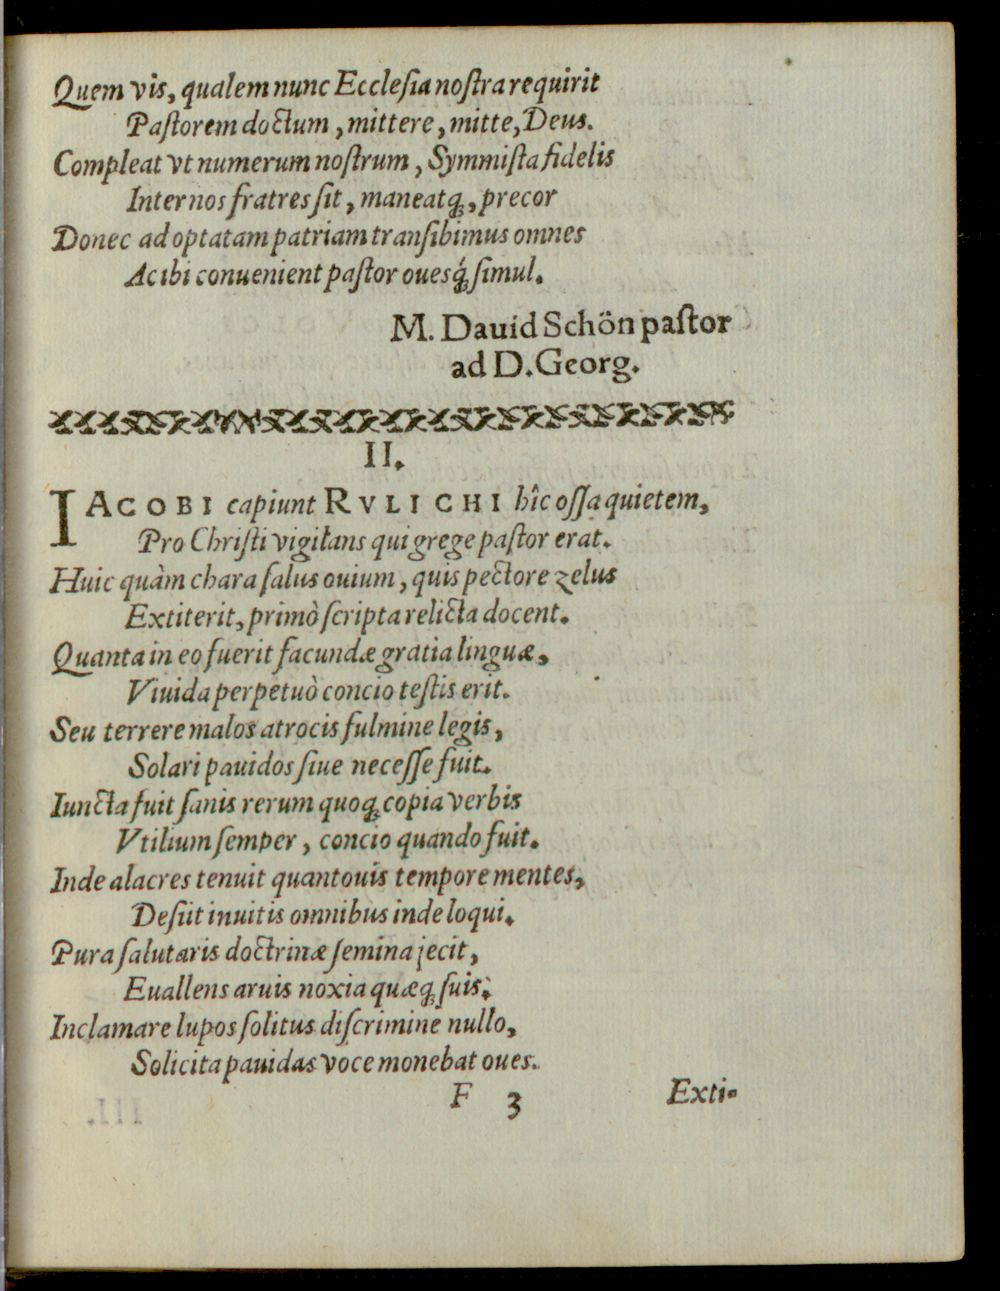 Quem vis, qualem nunc Ecclesia nostra requirit
Pastorem doctum, mittere, mitte, Deus.
Compleat vt numerum nostrum, Symmista fidelis
Inter nos fratres sit, maneatq́, precor
Donec ad optatam patriam transibimus omnes
Ac ibi conuenient pastor ouesq́ simul.
M. Dauid Schön pastor
ad D. Georg.
II.
IACOBI capiunt RVLICHI hîc ossa quietem,
Pro Christi vigilans qui grege pastor erat.
Huic quàm chara salus ouium, quis pectore zelus
Extiterit, primò scripta relicta docent.
Quanta in eo fuerit facundæ gratia linguæ,
Viuida perpetuò concio testis erit.
Seu terrere malos atrocis fulmine legis,
Solari pauidos siue necesse fuit.
Iuncta fuit sanis rerum quoq; copia verbis
Vtilium semper, concio quando fuit.
Inde alacres tenuit quantouis tempore mentes,
Desiit inuitis omnibus inde loqui.
Pura salutaris doctrinæ semina jecit,
Euallens aruis noxia quæq; suis;
Inclamare lupos solitus discrimine nullo,
Solicita pauidas voce monebat oues.
F 3 Exti-